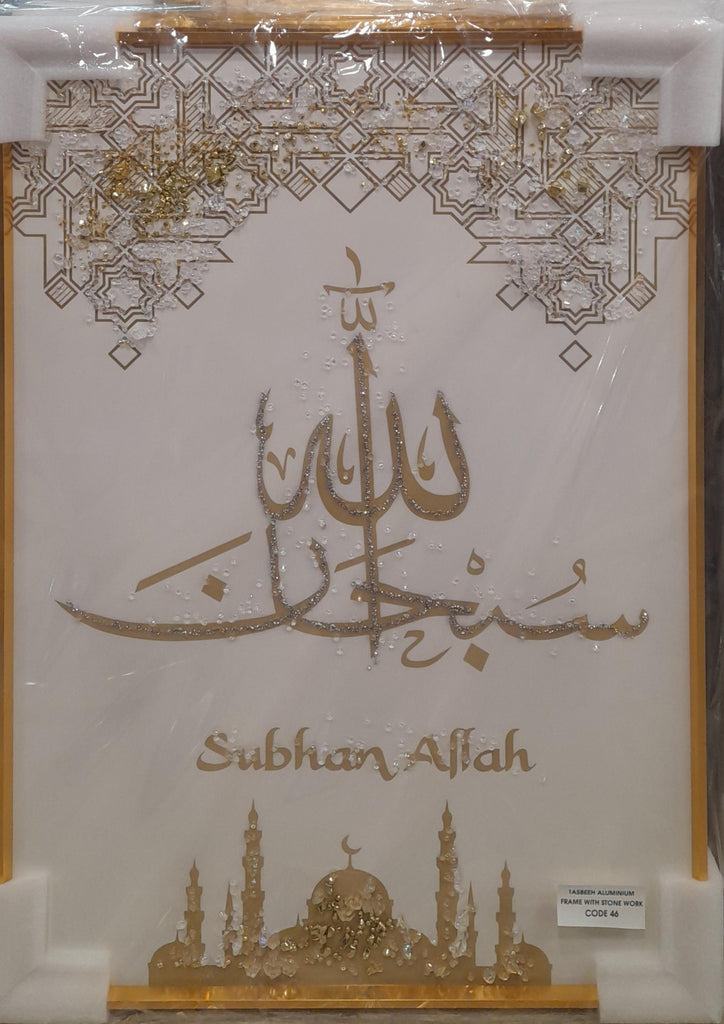 سُبْحَانَ اللّٰه
Subhan Allah
TASBEEH ALUMINIUM
FRAME WITH STONE WORK
CODE 46